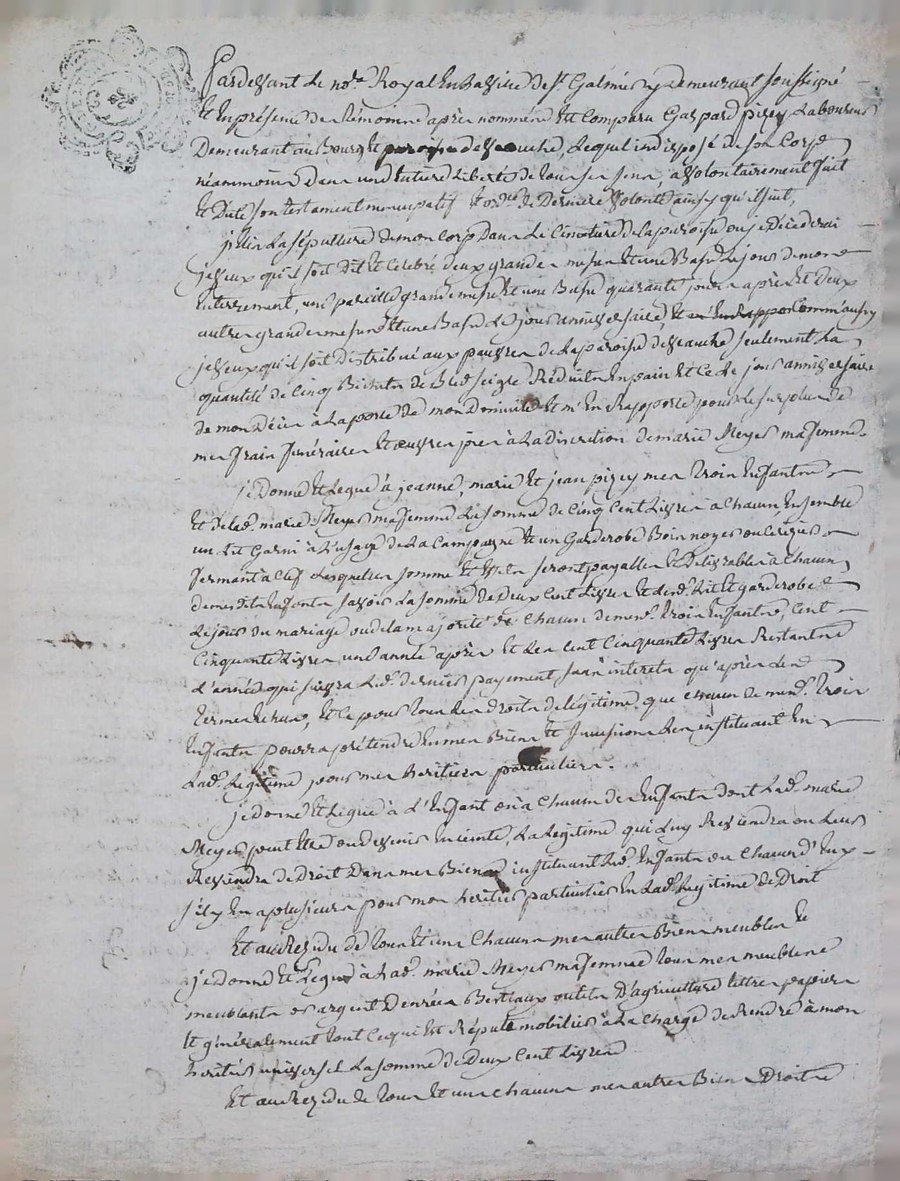 Pardevant Le no.re Royal En La Ville de St Galmier y Demeurant soussigné
Et En présence des témoins après nommés Est Comparu Gaspard pizey Laboureur
Demeurant au Bourg Et paroisse de veauche, Lequel indisposé de son Corps
néammoins dans une Entière Liberté de tous ses sens a volontairement fait
Et Dicté son testament nuncupatif Et ord.ce de Dernière volonté ainsy qu'il suit,
j'élis La sépulture de mon Corps Dans Le Cimetière de La paroisse ou je décèderai
je veux qu'il soit Dit Et Célébré deux grandes messes Et une Basse Le jour de mon
Enterrement, une pareille grande messe Et une Basse quarante jours après Et Deux
autres grandes messes Et une Basse Le jour anniversaire, Comm'aussy
je veux qu'il soit Distribué aux pauvres de La paroisse de veauche seulement La
quantité de Cinq Bichets de Bled seigle Réduits En pain Et Ce Le jour anniversaire
de mon Décès à La porte de mon Domicile Et m'En Rapporte pour Le surplus de
mes frais funéraires Et œuvres pies à La discrétion de marie Meyer ma femme.
je Donne Et Legue à jeanne, marie Et jean pizey mes trois Enfants
Et de Lad. marie Meyer ma femme La somme de Cinq Cent Livres à Chacun Ensemble
un Lit Garni à L'usage de La Campagne Et un Garderobe Bois noyer ou Cerisier
fermant à Clef Lesquelles somme Et Effets seront payables Et Délivrables à Chacun
de mesdits Enfants savoir La somme de Deux Cent Livres Et Lesd. Lit Et garderobe
Le jour du mariage ou de La majorité de Chacun de mesd. trois Enfants, Cent
Cinquante Livres une année après Et Les Cent Cinquante Livres Restantes
L'année qui suivra Led. dernier payement sans intérêts qu'après Les
termes Echus, Et Ce pour tous Les Droits de Légitime que Chacun de mesd. trois
Enfants pourra prétendre En mes Biens Et succession Les instituant En
Lad. Légitime pour mes héritiers particuliers.
je donne Et Legue à L'Enfant ou à Chacun des Enfants dont Lad. marie
Meyer peut Etre ou devenir Enceinte, La Légitime qui Luy Reviendra ou Leur
Reviendra de Droit Dans mes Biens instituant Led. Enfant ou Chacun d'Eux
s'il y En a plusieurs pour mon héritier particulier En Lad. Légitime de Droit
Et au Rezidu de tous Et uns Chacuns mes autres Biens meubles Et
je Donne Et Legue à Lad. marie Meyer ma femme tous mes meubles
meublants or argent Denrées Bestiaux outils D'agriculture titres papiers
Et généralement tout Ce qui Est Réputé mobilier à La Charge de Rendre à mon
héritier universel La somme de Deux Cent Livres
Et au Rezidu de tous Et uns Chacuns mes autres Biens Droits